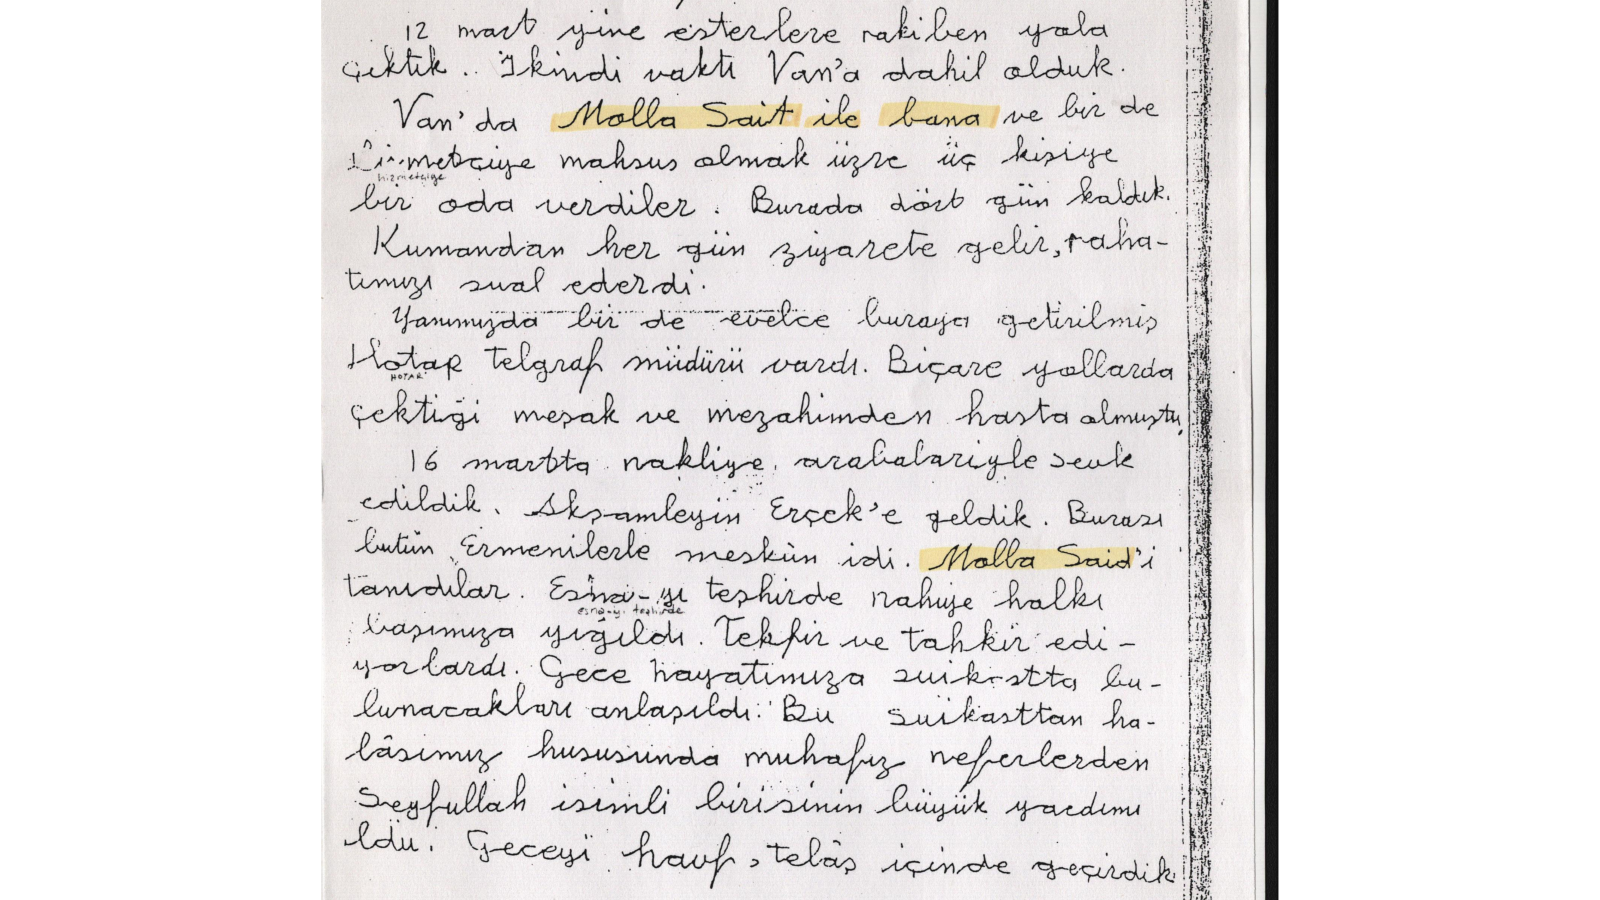 12 mart yine esterlere rakiben yola
çıktık.. İkindi vakti Van'a dahil olduk.
Van'da Molla Sait ile bana ve bir de
hizmetçiye mahsus olmak üzre üç kişiye
hizmetçiye
bir oda verdiler. Burada dört gün kaldık.
Kumandan her gün ziyarete gelir, raha-
tımızı sual ederdi.
Yanımızda bir de evelce buraya getirilmiş
Hotar telgraf müdürü vardı. Biçare yollarda
HOTAR
çektiği meşak ve mezahimden hasta olmuştu,
16 martta nakliye arabalariyle sevk
edildik. Akşamleyin Erçek'e geldik. Burası
butün Ermenilerle meskün idi. Molla Said'i
tanıdılar. Esna-yı teşhirde nahiye halkı
esna-yı teşhirde
başımıza yığıldı. Tekfir ve tahkir edi-
yorlardı. Gece hayatımıza suikastta bu-
lunacakları anlaşıldı. Bu suikasttan ha-
lâsımız hususunda muhafız neferlerden
Seyfullah isimli birisinin büyük yardımı
oldu. Geceyi havf, telâş içinde geçirdik